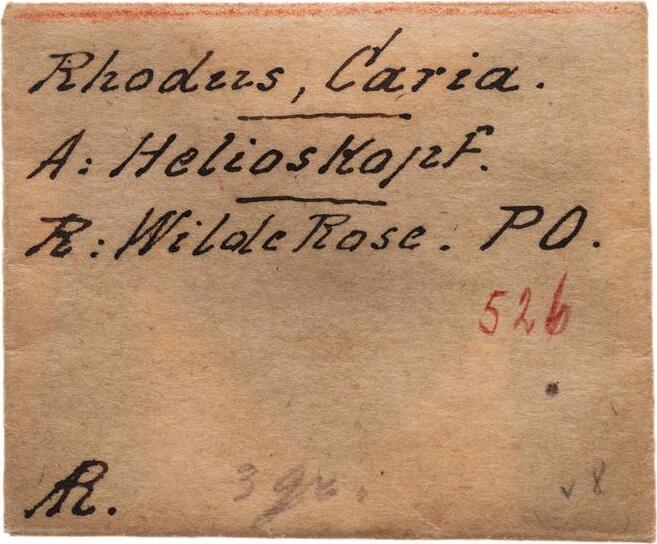 Rhodus, Caria.
A: Helioskopf.
R: Wilde Rose. PO.
526
AR. 3 gr.